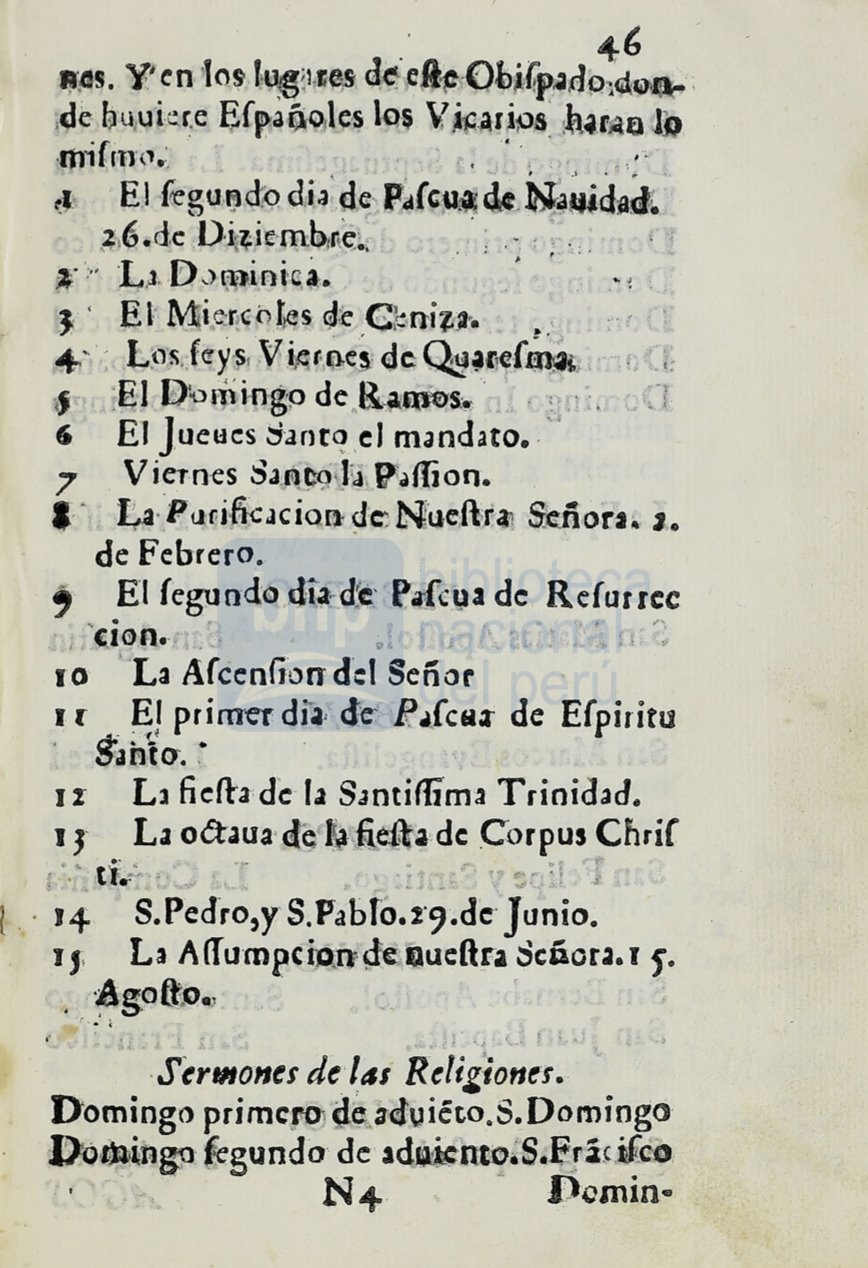 46
nes. Y en los lugares de eſte Obiſpado, don-
de huuiere Eſpañoles los Vicarios haran lo
miſmo.
1 El ſegundo dia de Paſcua de Nauidad.
26. de Diziembre.
2 La Dominica.
3 El Miercoles de Ceniza.
4 Los ſeys Viernes de Quareſma.
5 El Domingo de Ramos.
6 El Jueues Santo el mandato.
7 Viernes Santo la Paſſion.
8 La Purificacion de Nueſtra Señora. 2.
de Febrero.
9 El ſegundo dia de Paſcua de Reſurrec
cion.
10 La Aſcenſion del Señor
11 El primer dia de Paſcua de Eſpiritu
Santo.
12 La fieſta de la Santiſſima Trinidad.
13 La octaua de la fieſta de Corpus Chriſ
ti.
14 S. Pedro, y S. Pablo. 29. de Junio.
15 La Aſſumpcion de nueſtra Señora. 15.
Agoſto.
Sermones de las Religiones.
Domingo primero de aduiẽto. S. Domingo
Domingo ſegundo de aduiento. S. Frãciſco
N4 Domin-
bnp biblioteca
nacional
del perú